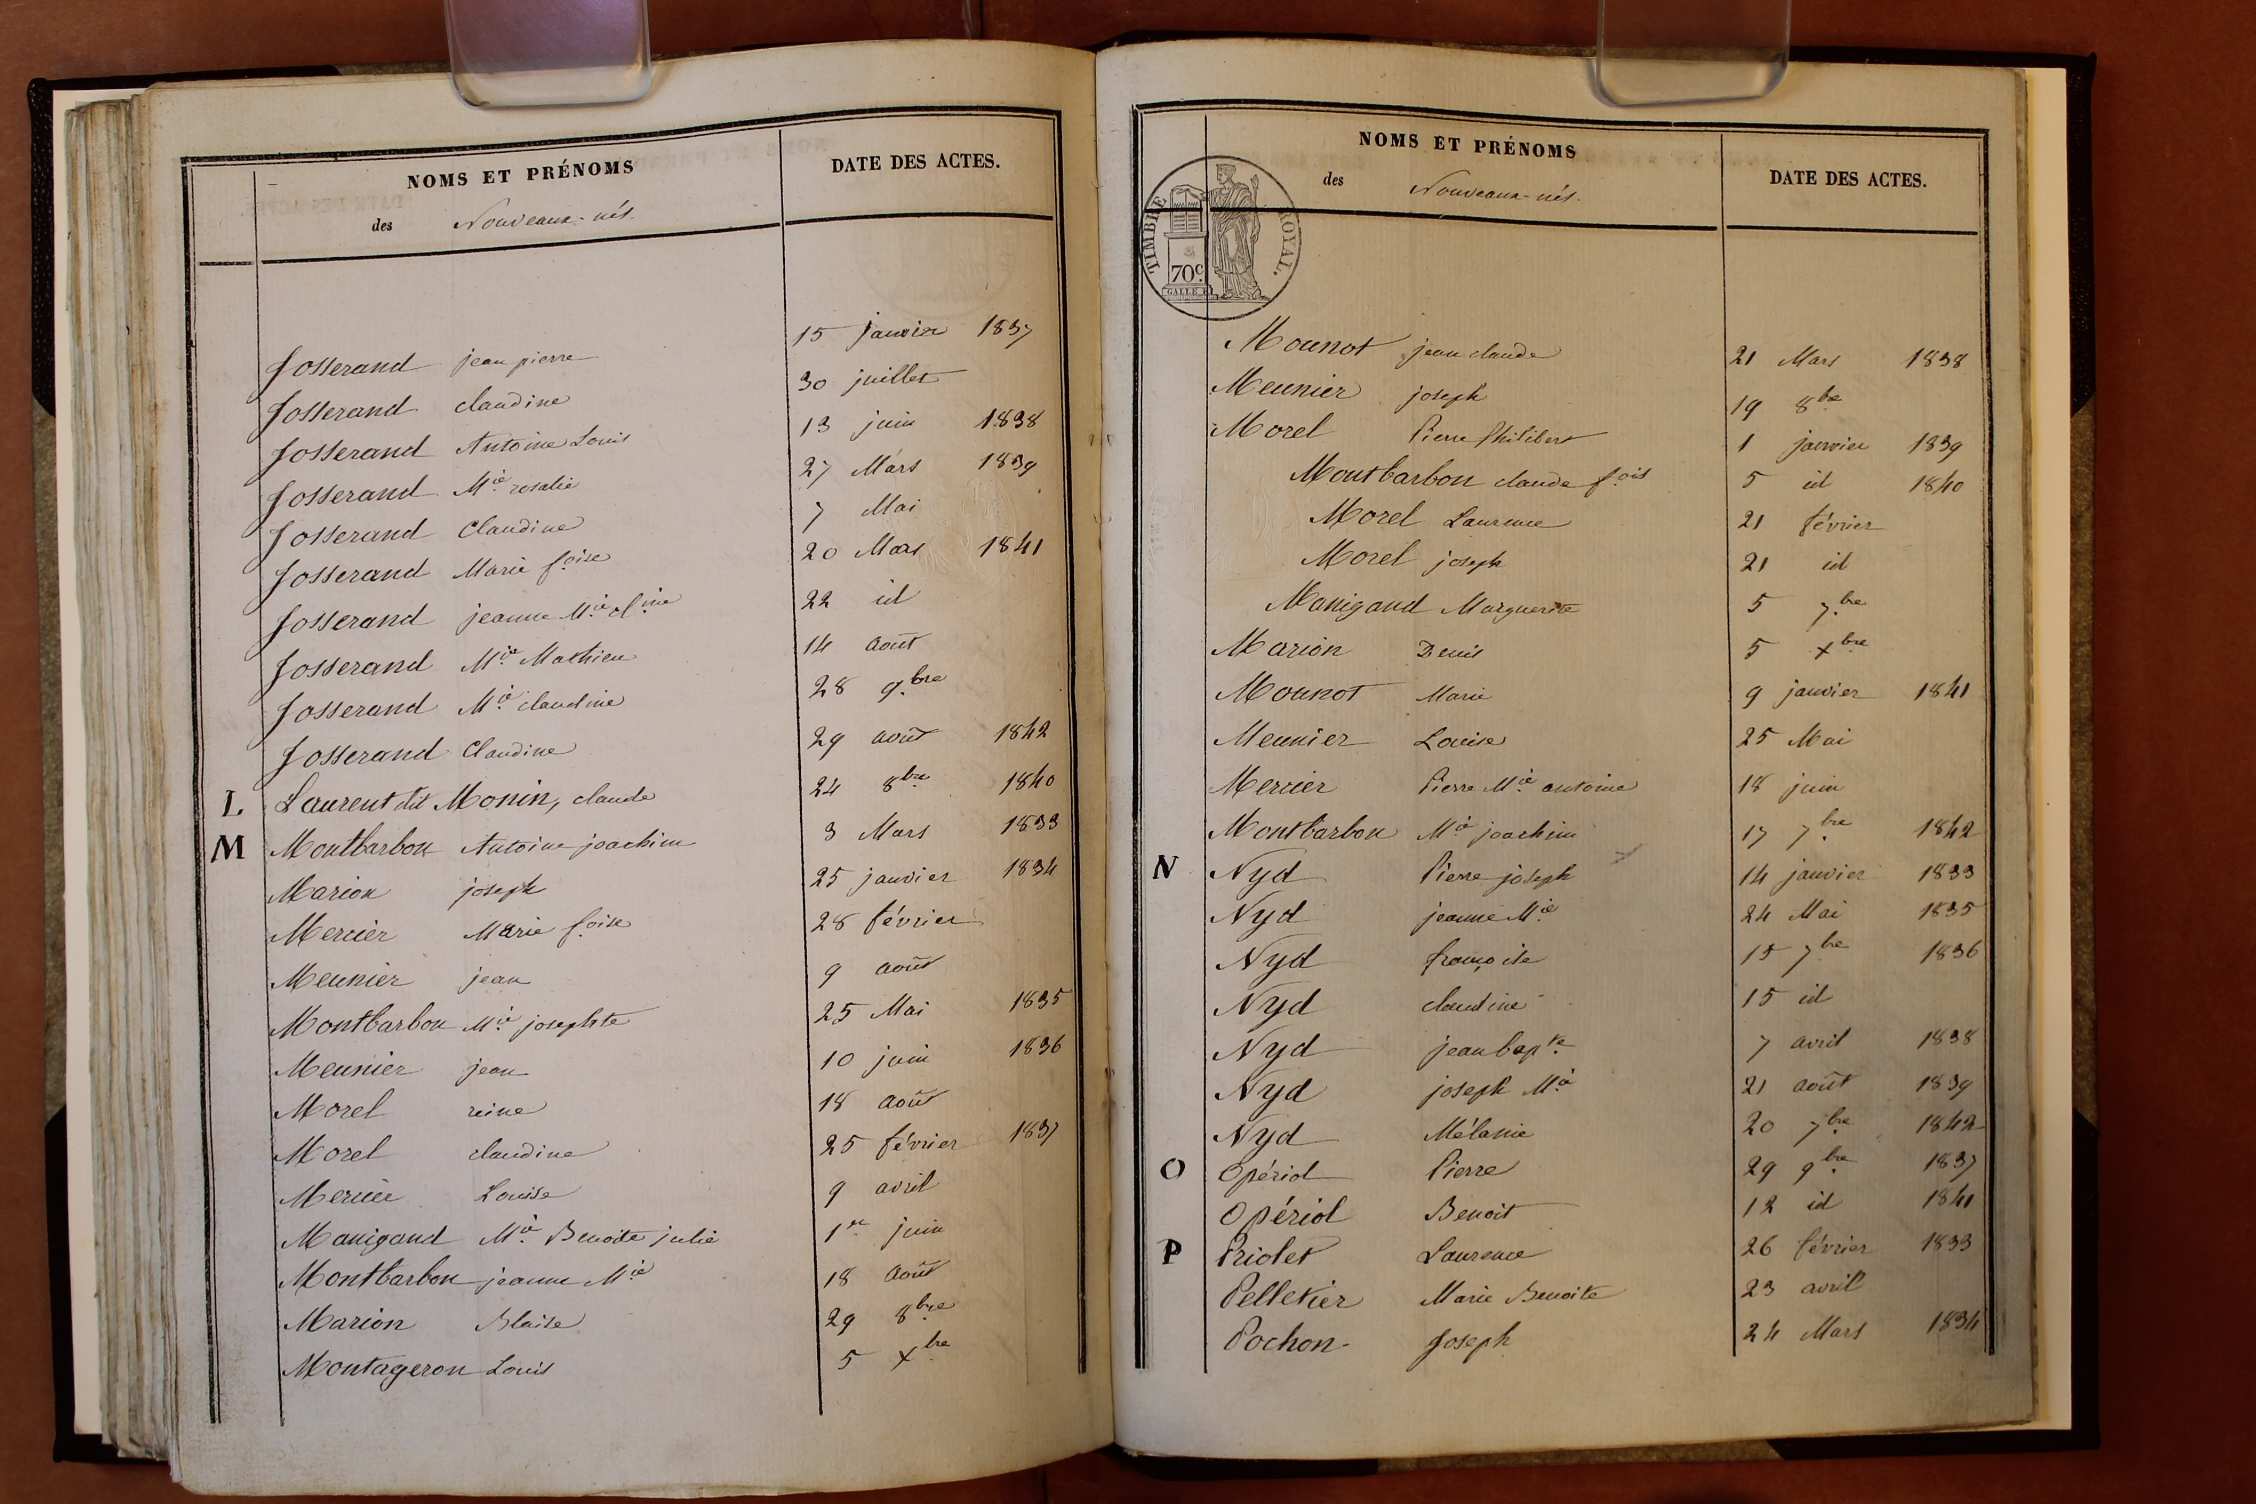 NOMS ET PRÉNOMS
des Nouveaux-nés.
DATE DES ACTES.
Josserand jean pierre 15 janvier 1837
Josserand claudine 30 juillet
Josserand Antoine Louis 13 juin 1838
Josserand Mie rosalie 27 Mars 1839
Josserand Claudine 7 Mai
Josserand Marie foise 20 Mars 1841
Josserand jeanne Mie cl.ine 22 id
Josserand Mie Mathieu 14 août
Josserand Mie claudine 28 9.bre
Josserand Claudine 29 août 1842
L Laurent dit Monin, claude 24 8bre 1840
M Montbarbon Antoine joachim 3 Mars 1833
Marion joseph 25 janvier 1834
Mercier Marie foise 28 février
Meunier jean 9 août
Montbarbon Mie josephte 25 Mai 1835
Meunier jean 10 juin 1836
Morel reine 18 août
Morel claudine 25 février 1837
Mercier Louise 9 avril
Manigand Mie Benoite julie 1er juin
Montbarbon jeanne Mie 18 août
Marion Blaise 29 8bre
Montageron Louis 5 Xbre
NOMS ET PRÉNOMS
des Nouveaux-nés.
DATE DES ACTES.
TIMBRE ROYAL.
70c.
GALLE F.
Mounot jean claude 21 Mars 1838
Meunier joseph 19 8bre
Morel Pierre Philibert 1 janvier 1839
Montbarbon claude f.ois 5 id 1840
Morel Laurence 21 février
Morel joseph 21 id
Manigand Marguerite 5 7.bre
Marion Denis 5 Xbre
Mounot Marie 9 janvier 1841
Meunier Louise 25 Mai
Mercier Pierre Mie antoine 18 juin
Montbarbon Mie joachim 17 7bre 1842
N Nyd Pierre joseph 14 janvier 1833
Nyd jeanne Mie 24 Mai 1835
Nyd françoise 15 7bre 1836
Nyd claudine 15 id
Nyd jean bapte 7 avril 1838
Nyd joseph Mie 21 août 1839
Nyd Mélanie 20 7bre 1842
O Opériol Pierre 29 9bre 1837
Opériol Benoit 12 id 1841
P Priolet Laurence 26 février 1833
Pelletier Marie Benoite 23 avril
Pochon Joseph 24 Mars 1834